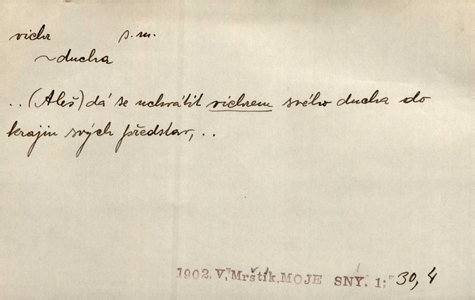 vichr s.m.
~ducha
..(Aleš) dá se uchvátit vichrem svého ducha do
krajin svých představ,..
1902.V.Mrštík,MOJE SNY. 1; 30,4